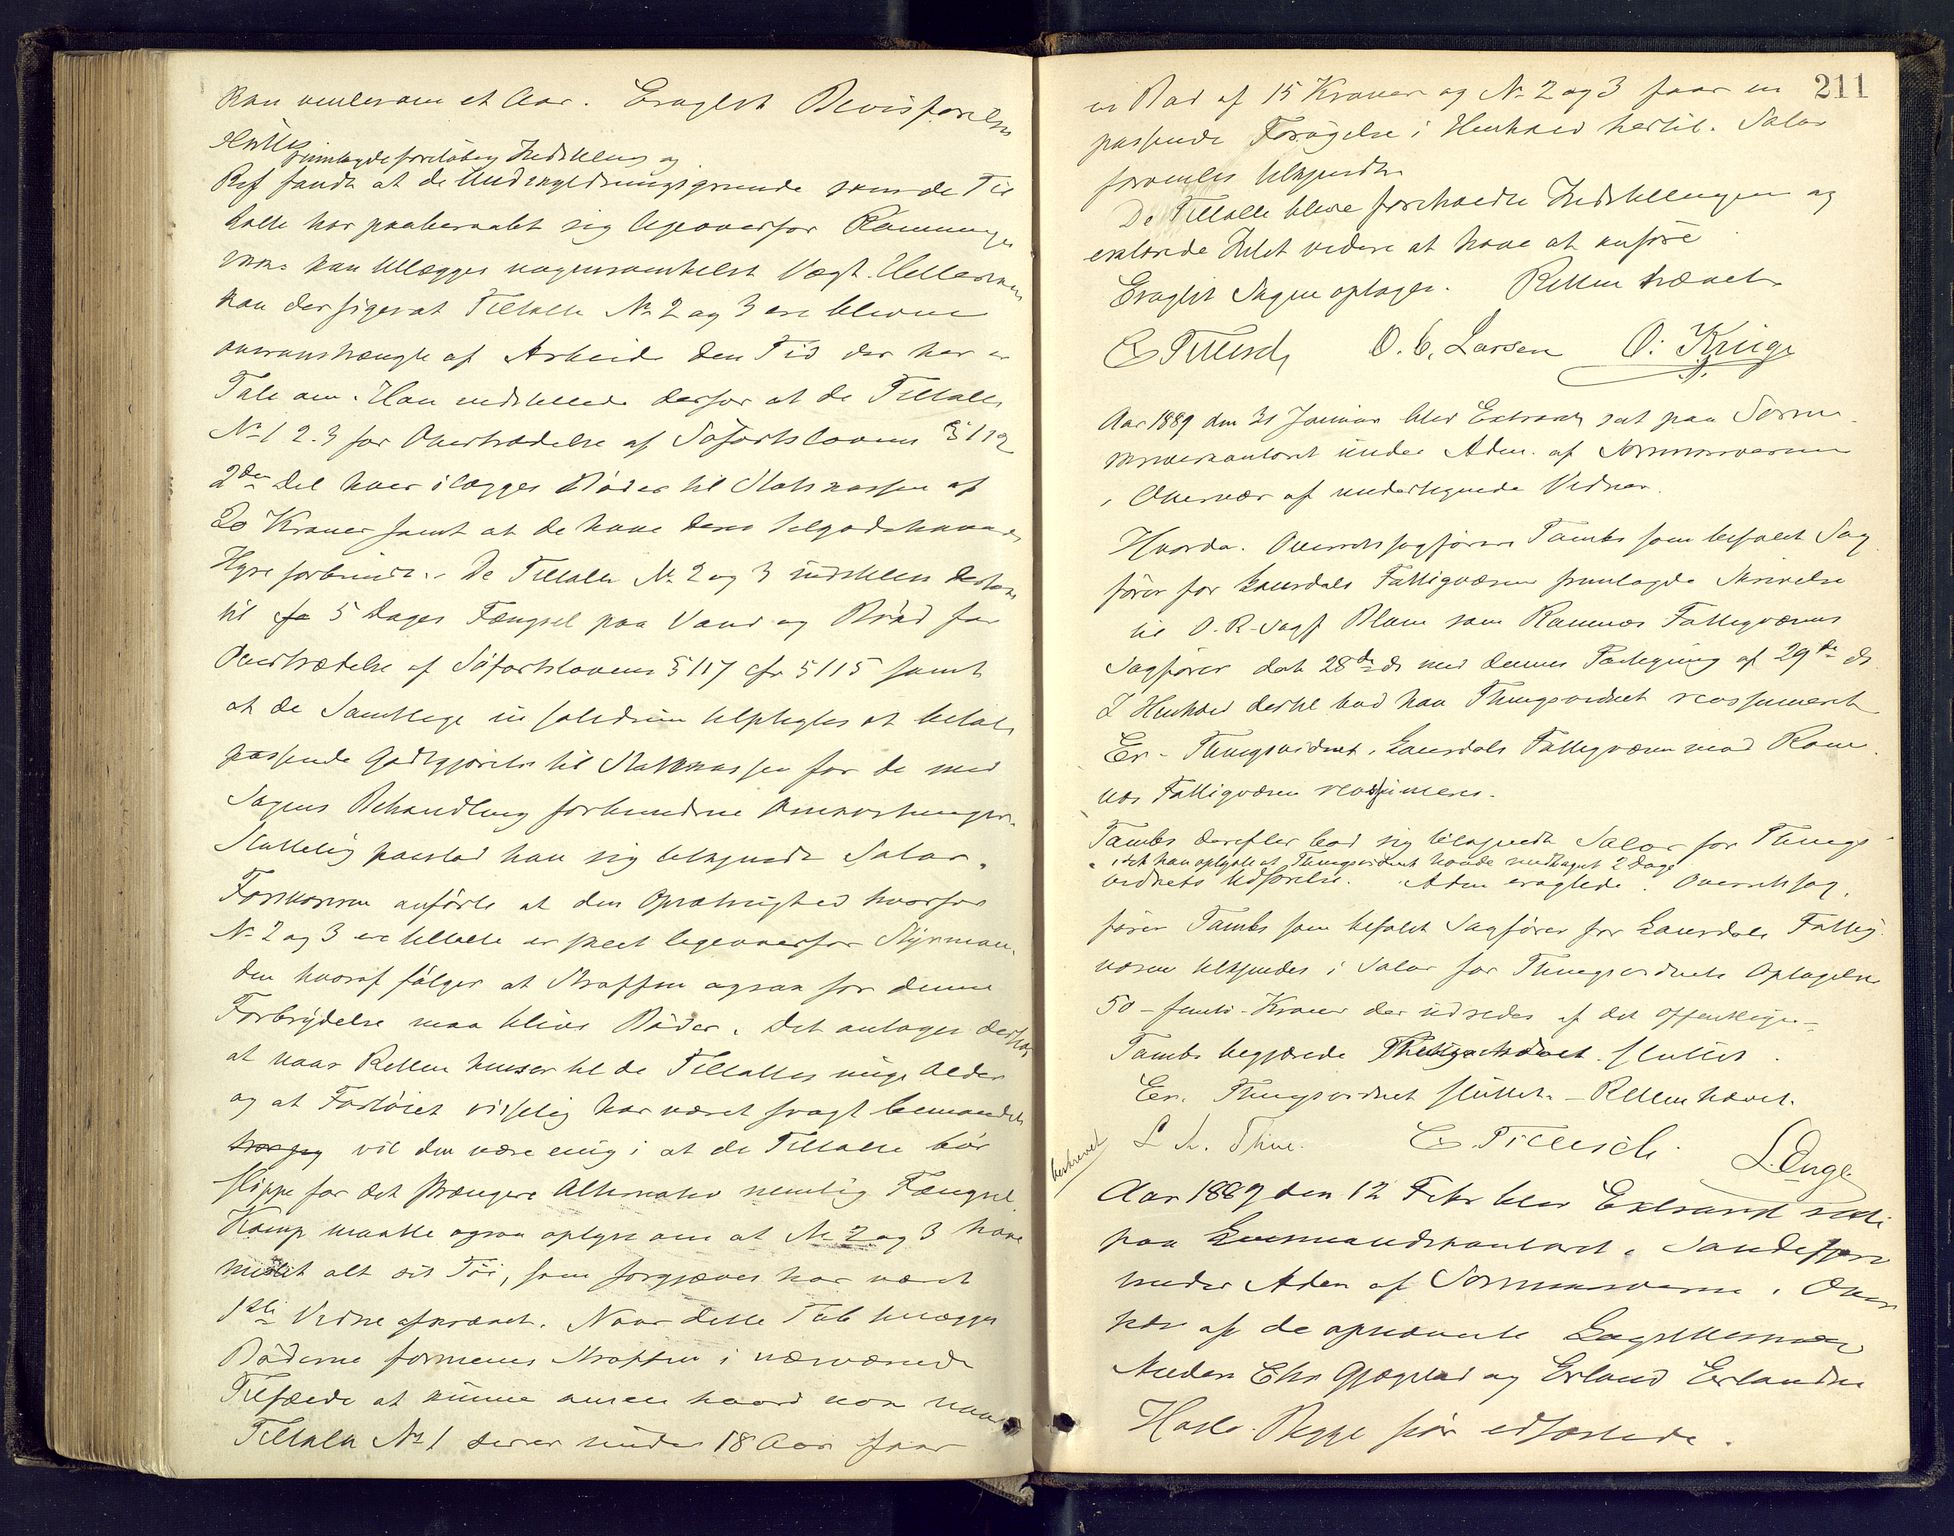 kan omlesom et Aar. Eragtet Bevisførelsen
sluttet
fremlagde foreløbig Indstilling og
Ref fandt at de Undskyldningsgrunde som de Til
talte har paaberaabt sig ligeoverfor Rømningen
ikke kan tillægges nogensomhelst Vægt. Hellerikke
kan der siges at Tiltalte No 2 og 3 ere blevne
overanstrængte af Arbeide den Tid der her er
Tale om. Han indstillede derfor at de Tiltalte
No 1 2. 3 for Overtrædelse af Søfartslovens § 112
2den Del hver ilægges Bøder til Statskassen af
20 Kroner samt at de have deres tilgodehavende
Hyre forbrudt. De Tiltalte No 2 og 3 indstilles desuden
til 5 Dages Fængsel paa Vand og Brød for
Overtrædelse af Søfartslovens § 117 cfr § 115 samt
at de Samtlige in solidum tilpligtes at betale
passende Godtgjørelse til Statskassen for de med
Sagens Behandling forbundne Omkostninger.
Sluttelig paastod han sig tilkjendt Salær.
Forsvareren anførte at den Opsætsighed hvorfor
No 2 og 3 ere tiltalte er skeet ligeoverfor Styrman
den hvoraf følger at Straffen ogsaa for denne
Forbrydelse maa blive Bøder. Det antages derhos
at naar Retten henser til de Tiltaltes unge Alder
og at Fartøiet visselig har været svagt bemandet
vil den være enig i at de Tiltalte bør
slippe for det strængere Alternativ nemlig Fængsel.
Kamp maatte ogsaa oplyse om at No 2 og 3 have
mistet alt sit Tøi, som forgjæves har været
1ste Vidne afkrævet. Naar dette Tab tillægges
Bøderne formenes Straffen i nærværende
Tilfælde at kunne ansees haard nok
Tiltalte No 1 under 18 Aar faar
211
en Bod af 15 Kroner og No 2 og 3 faar en
passende Forøgelse i Henhold hertil. Salær
forventes tilkjendt.
De Tiltalte bleve foreholdte Indstillingen og
erklærede Intet videre at have at anføre
Eragtet Sagen optages. Retten hævet.
C Tillisch O. C. Larsen O. Kruge
Aar 1889 den 31 Januar blev Extraret sat paa Soren
skriverkontoret under Adm. af Sorenskriveren
i Overvær af undertegnede Vidner.
Hvorda. Overretssagfører Tambs som befalet Sag
fører for Laurdals Fattigvæsen fremlagde Skrivelse
til O.R.Sagf Blom som Ramnes Fattigvæsens
Sagfører dat 28de ds med dennes Paategning af 29de ds
I Henhold dertil bad han Thingsvidnet reassumeret
Er. Thingsvidnet, Laurdals Fattigvæsen mod Ram
næs Fattigvæsen reassumeres.
Tambs derefter bad sig tilkjendt Salær for Things
idet han oplyste at Thingsvidnet havde medtaget 2 Dage
vidnets Udførelse. Adm eragtede. Overretssag
fører Tambs som befalet Sagfører for Laurdals Fattig
væsen tilkjendes i Salær for Thingsvidnets Optagelse
50 - femti - Kroner der udredes af det Offentlige.
Tambs begjærede Thingsvidnet sluttet.
Er. Thingsvidnet sluttet. - Retten hævet.
beskrevet
L. A. Thue. C Tillisch. L. Enge
Aar 1889 den 12 Febr blev Extraret sat
paa Lensmandskontoret i Sandefjord
under Adm af Sorenskriveren i Over
vær af de opnævnte Lagrettesmænd
Anders Chr Gjægstad og Erland Erlandsen
Hasle. Begge før edfæstede.